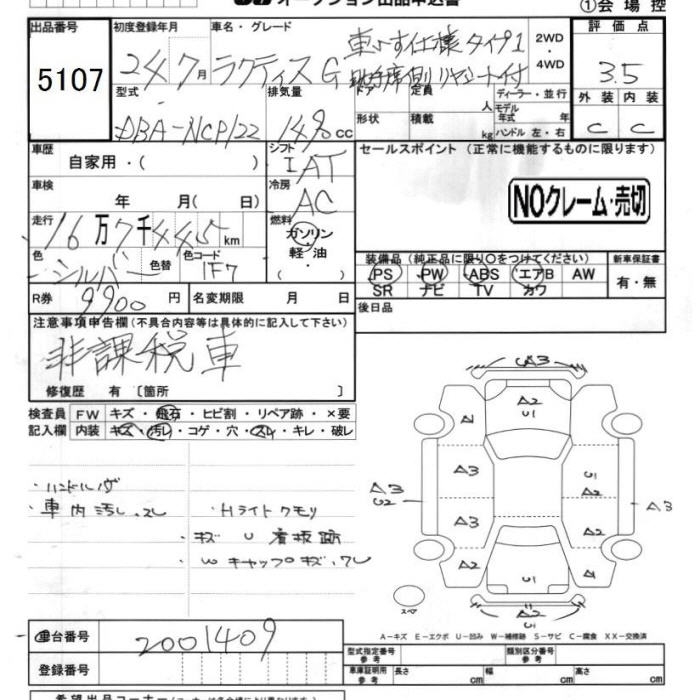 オークション出品申込書
①会場控
出品番号 初度登録年月 車名・グレード 2WD・4WD 評価点
5107 24 7月 ラクティス G 車いす仕様 タイプ1 助手席側リヤシート付 3.5
型式 排気量 ドア 定員 人 ディーラー・並行 外装 内装
DBA-NCP122 1490cc 形状 積載 kg モデル年式 年 ハンドル 左・右 C C
車歴 自家用・( ) シフト IAT セールスポイント (正常に機能するものに限ります)
車検 年 月( 日) 冷房 AC
NOクレーム・売切
走行 16万7千445km 燃料 ガソリン・軽・油
色 シルバー 色替 色コード 1F7
装備品 (純正品に限り○をつけてください) 新車保証書
PS PW ABS エアB AW 有・無
SR ナビ TV カワ
R券 9900円 名変期限 月 日 後日品
注意事項申告欄 (不具合内容等は具体的に記入して下さい)
非課税車
修復歴 有 〔箇所 〕
検査員 FW キズ・飛石・ヒビ割・リペア跡・×要
記入欄 内装 キズ・汚レ・コゲ・穴・スレ・キレ・破レ
・車内汚レ、スレ ・Hライトクモリ
・キズ U 看板跡
W キャップキズ、ワレ
A3
A2
U1
A1
A3 A3 U1 A2 A3
U2
A3 A2
A2 U1 A1
A2
U1
スペア
A-キズ E-エクボ U-凹み W-補修跡 S-サビ C-腐食 XX-交換済
車台番号 2001409
登録番号
型式指定番号 参考 類別区分番号 参考
車庫証明用 参考 長さ cm 幅 cm 高さ cm
希望出品コーナー